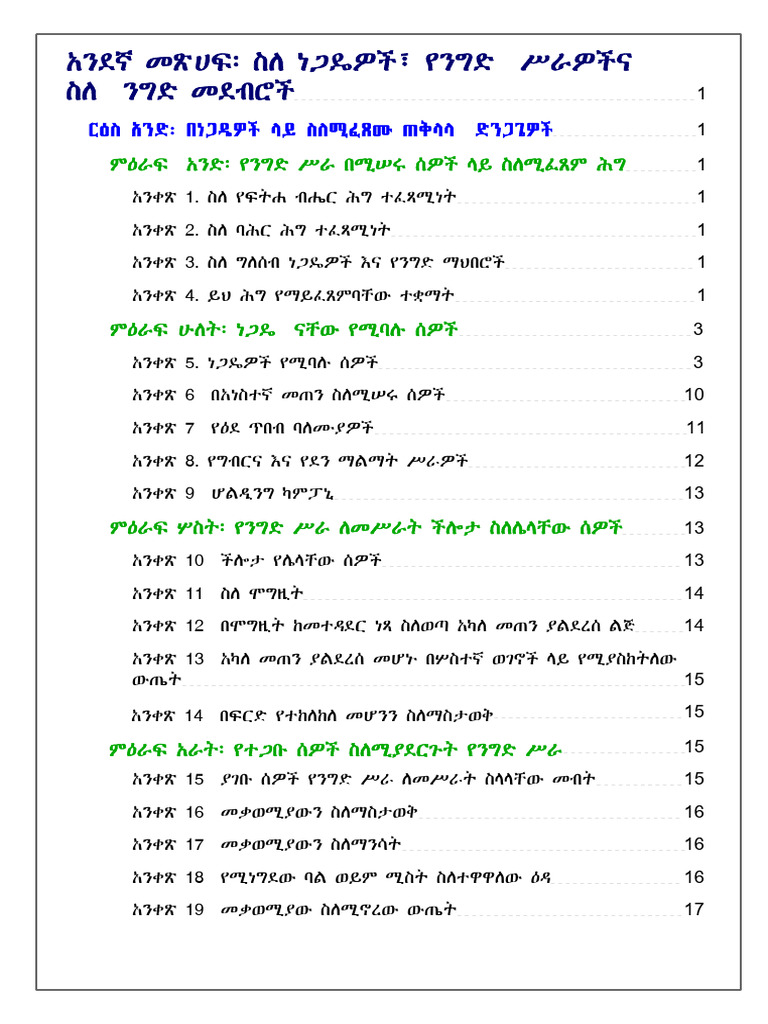 አንደኛ መጽሀፍ፡ ስለ ነጋዴዎች፣ የንግድ ሥራዎችና
ስለ ንግድ መደብሮች 1
ርዕስ አንድ፡ በነጋዴዎች ላይ ስለሚፈጸሙ ጠቅላላ ድንጋጌዎች 1
ምዕራፍ አንድ፡ የንግድ ሥራ በሚሠሩ ሰዎች ላይ ስለሚፈጸም ሕግ 1
አንቀጽ 1. ስለ የፍትሐ ብሔር ሕግ ተፈጻሚነት 1
አንቀጽ 2. ስለ ባሕር ሕግ ተፈጻሚነት 1
አንቀጽ 3. ስለ ግለሰብ ነጋዴዎች እና የንግድ ማህበሮች 1
አንቀጽ 4. ይህ ሕግ የማይፈጸምባቸው ተቋማት 1
ምዕራፍ ሁለት፡ ነጋዴ ናቸው የሚባሉ ሰዎች 3
አንቀጽ 5. ነጋዴዎች የሚባሉ ሰዎች 3
አንቀጽ 6 በአነስተኛ መጠን ስለሚሠሩ ሰዎች 10
አንቀጽ 7 የዕደ ጥበብ ባለሙያዎች 11
አንቀጽ 8. የግብርና እና የደን ማልማት ሥራዎች 12
አንቀጽ 9 ሆልዲንግ ካምፓኒ 13
ምዕራፍ ሦስት፡ የንግድ ሥራ ለመሥራት ችሎታ ስለሌላቸው ሰዎች 13
አንቀጽ 10 ችሎታ የሌላቸው ሰዎች 13
አንቀጽ 11 ስለ ሞግዚት 14
አንቀጽ 12 በሞግዚት ከመተዳደር ነጻ ስለወጣ አካለ መጠን ያልደረሰ ልጅ 14
አንቀጽ 13 አካለ መጠን ያልደረሰ መሆኑ በሦስተኛ ወገኖች ላይ የሚያስከትለው
ውጤት 15
አንቀጽ 14 በፍርድ የተከለከለ መሆንን ስለማስታወቅ 15
ምዕራፍ አራት፡ የተጋቡ ሰዎች ስለሚያደርጉት የንግድ ሥራ 15
አንቀጽ 15 ያገቡ ሰዎች የንግድ ሥራ ለመሥራት ስላላቸው መብት 15
አንቀጽ 16 መቃወሚያውን ስለማስታወቅ 16
አንቀጽ 17 መቃወሚያውን ስለማንሳት 16
አንቀጽ 18 የሚነግደው ባል ወይም ሚስት ስለተዋዋለው ዕዳ 16
አንቀጽ 19 መቃወሚያው ስለሚኖረው ውጤት 17